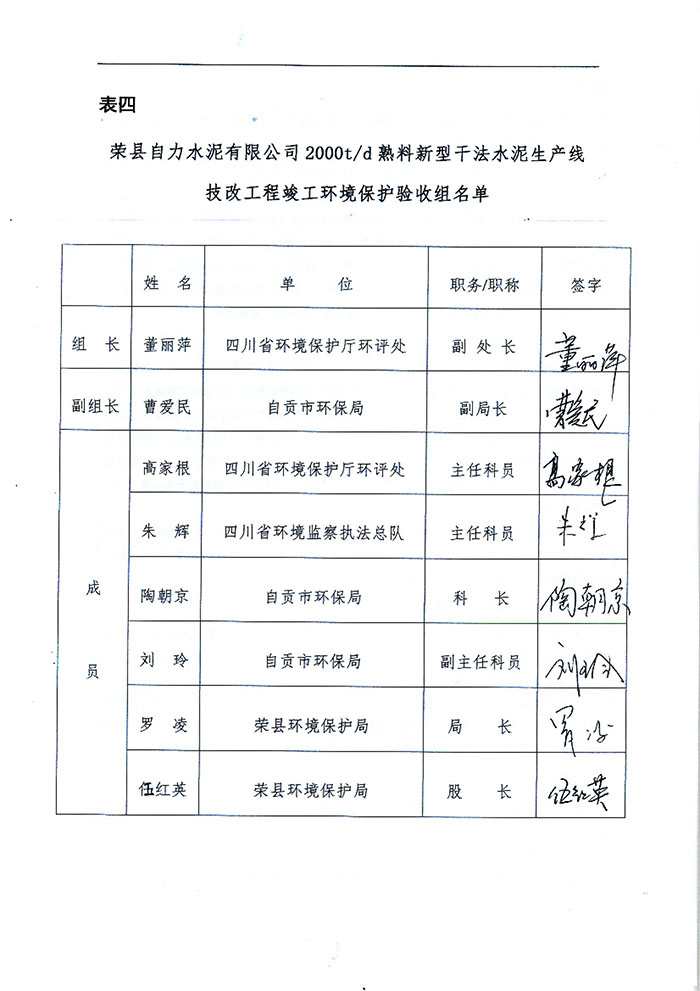 表四
荣县自力水泥有限公司2000t/d熟料新型干法水泥生产线
技改工程竣工环境保护验收组名单
姓 名 单 位 职务/职称 签字
组 长 董丽萍 四川省环境保护厅环评处 副 处 长 董丽萍
副组长 曹爱民 自贡市环保局 副局长 曹爱民
成员
高家根 四川省环境保护厅环评处 主任科员 高家根
朱 辉 四川省环境监察执法总队 主任科员 朱辉
陶朝京 自贡市环保局 科 长 陶朝京
刘 玲 自贡市环保局 副主任科员 刘玲
罗 凌 荣县环境保护局 局 长 罗凌
伍红英 荣县环境保护局 股 长 伍红英